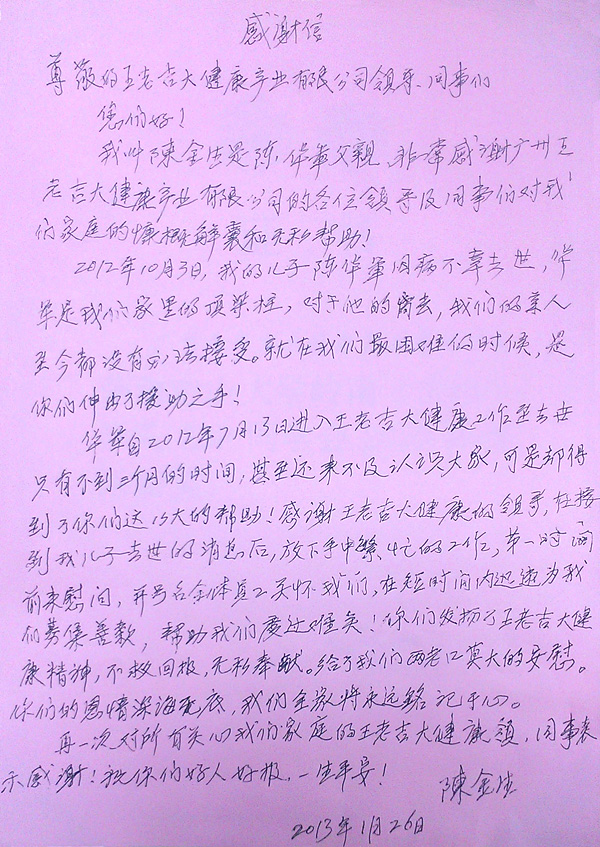 感谢信
尊敬的王老吉大健康产业有限公司领导、同事们
您们好!
我叫陳金生是陈华華父親,非常感谢广州王
老吉大健康产业有限公司的各位领导及同事们对我
们家庭的慷概解囊和无私帮助!
2012年10月3日,我的儿子陈华華因病不幸去世,华
華是我们家里的顶梁柱,对于他的离去,我们的家人
至今都没有办法接受。就在我们最困难的时候,是
你们伸出了援助之手!
华華自2012年7月13日进入王老吉大健康工作至去世
只有不到三个月的时间,甚至还来不及认识大家,可是却得
到了你们这么大的帮助!感谢王老吉大健康的领导,在接
到我儿子去世的消息后,放下手中繁忙的工作,第一时间
前来慰问,并号召全体员工关怀我们,在短时间内迅速为我
们募集善款,帮助我们度过难关!你们发扬了王老吉大健
康精神,不求回报,无私奉献。给了我们两老口莫大的安慰。
你们的恩情深海无底,我们全家将永远銘记于心。
再一次对所有关心我们家庭的王老吉大健康领,同事表
示感谢!祝你们好人好报,一生平安!
陳金生
2013年1月26日